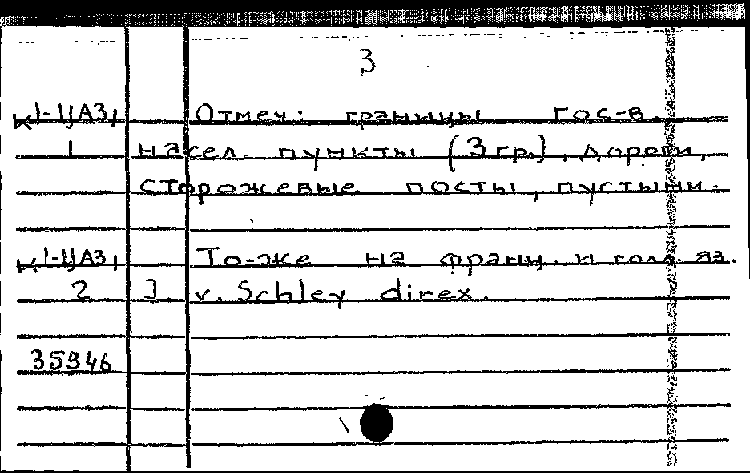 3
К1-ЦАЗ, Отмеч: границы гос-в.
1 насел. пункты (3 гр.), дороги,
сторожевые посты, пустыни.
К1-ЦАЗ, То-же на франц. и голл. яз.
2 J. v. Schley direx.
35946